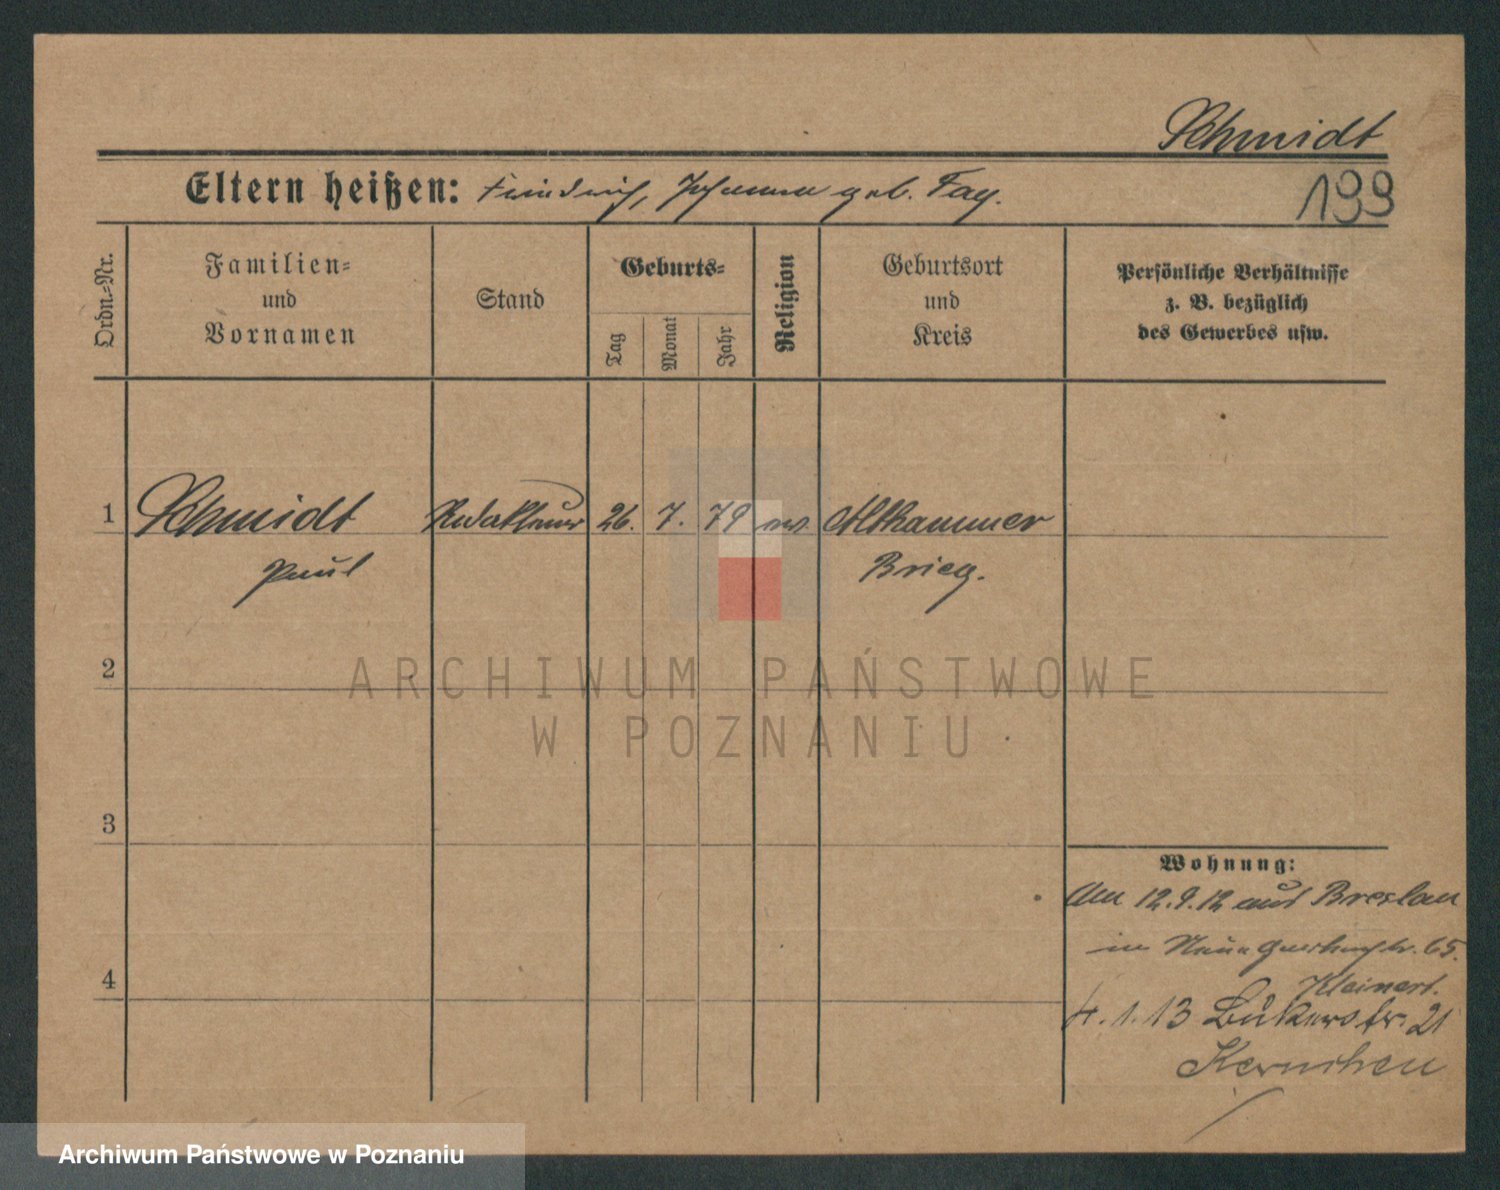 Schmidt
Eltern heißen: Friedrich, Johanna geb. Fag.
199
Ordn.-Nr.
Familien-
und
Vornamen
Stand
Geburts-
Tag
Monat
Jahr
Religion
Geburtsort
und
Kreis
Persönliche Verhältnisse
z. B. bezüglich
des Gewerbes usw.
1 Schmidt Redakteur 26. 7. 79 ev. Altkammer
Paul Brieg.
2
3
4
Wohnung:
Am 12.9.12 aus Breslau
in Neue 65.
Kleinert.
4.1.13 21
Kernchen
ARCHIWUM PAŃSTWOWE
W POZNANIU
Archiwum Państwowe w Poznaniu